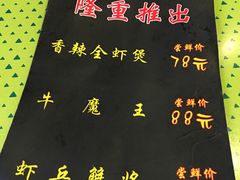 隆重推出
香辣全虾煲 尝鲜价
78元
牛魔王 尝鲜价
88元
虾兵蟹将 尝鲜价